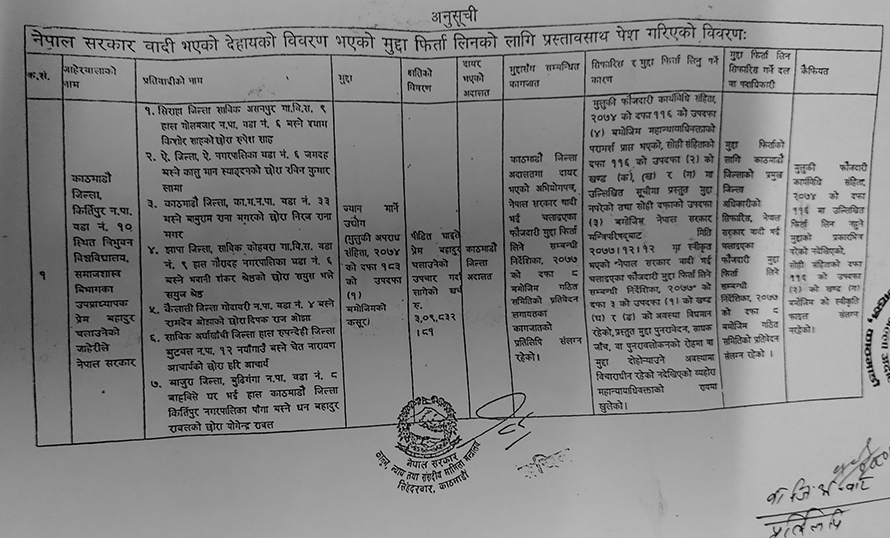 अनुसूची
नेपाल सरकार वादी भएको देहायको विवरण भएको मुद्दा फिर्ता लिनको लागि प्रस्तावसाथ पेश गरिएको विवरणः
क.सं.
जाहेरवालाको
नाम
प्रतिवादीको नाम
मुद्दा
क्षतिको
विवरण
दायर
भएको
अदालत
मुद्दासँग सम्बन्धित
कागजात
सिफारिस र मुद्दा फिर्ता लिनु पर्ने
कारण
मुद्दा फिर्ता लिन
सिफारिस गर्ने दल
वा पदाधिकारी
कैफियत
१
काठमाडौं
जिल्ला,
किर्तिपुर न.पा.
वडा नं. १०
स्थित त्रिभुवन
विश्वविद्यालय,
समाजशास्त्र
विभागका
उपप्राध्यापक
प्रेम बहादुर
चलाउनेको
जाहेरीले
नेपाल सरकार
१. सिराहा जिल्ला साविक असनपुर गा.वि.स. ९
हाल गोलबजार न.पा. वडा नं. ६ बस्ने श्याम
किशोर साहको छोरा रुपेश साह
२. ऐ. जिल्ला, ऐ. नगरपालिका वडा नं. ६ जगदह
बस्ने कालु मान स्याङ्दनको छोरा रविन कुमार
लामा
३. काठमाडौं जिल्ला, का.म.न.पा. वडा नं. ३३
बस्ने बाबुराम राना मगरको छोरा निरज राना
मगर
४. झापा जिल्ला, साविक कोहवरा गा.वि.स. वडा
नं. ९ हाल गौरादह नगरपालिका वडा नं. ६
बस्ने भवानी शंकर श्रेष्ठको छोरा समुस भन्ने
समुज श्रेष्ठ
५. कैलाली जिल्ला गोदावरी न.पा. वडा नं. ४ बस्ने
रामदेव ओझाको छोरा दिपक राज ओझा
६. साविक अर्घाखाँची जिल्ला हाल रुपन्देही जिल्ला
बुटवल न.पा. १२ नयाँगाउँ बस्ने चेत नारायण
आचार्यको छोरा हरि आचार्य
७. बाजुरा जिल्ला, बुढिगंगा न.पा. वडा नं. ८
बाह्रविसे घर भई हाल काठमाडौं जिल्ला
किर्तिपुर नगरपालिका पाँगा बस्ने धन बहादुर
रावलको छोरा योगेन्द्र रावल
ज्यान मार्ने
उद्योग
(मुलुकी अपराध
संहिता, २०७४
को दफा १८३
को उपदफा
(१)
बमोजिमको
कसूर)
पीडित घाइते
प्रेम बहादुर
चलाउनेको
उपचार गर्दा
लागेको खर्च
रु.
३,०९,८३२
।८१
काठमाडौं
जिल्ला
अदालत
काठमाडौं जिल्ला
अदालतमा दायर
भएको अभियोगपत्र,
नेपाल सरकार वादी
भई चलाइएका
फौजदारी मुद्दा फिर्ता
लिने सम्बन्धी
निर्देशिका, २०७७
को दफा ८
बमोजिम गठित
समितिको प्रतिवेदन
लगायतका
कागजातको
प्रतिलिपि संलग्न
रहेको।
मुलुकी फौजदारी कार्यविधि संहिता,
२०७४ को दफा ११६ को उपदफा
(४) बमोजिम महान्यायाधिवक्ताको
परामर्श प्राप्त भएको, सोही संहिताको
दफा ११६ को उपदफा (२) को
खण्ड (क), (ख) र (ग) मा
उल्लिखित सूचीमा प्रस्तुत मुद्दा
नपरेको तथा सोही दफाको उपदफा
(३) बमोजिम नेपाल सरकार
मन्त्रिपरिषद्‌बाट मिति
२०७७।१२।१२ मा स्वीकृत
भएको "नेपाल सरकार वादी भई
चलाइएका फौजदारी मुद्दा फिर्ता लिने
सम्बन्धी निर्देशिका, २०७७" को
दफा ३ को उपदफा (१) को खण्ड
(घ) र (ङ) को अवस्था विद्यमान
रहेको, प्रस्तुत मुद्दा पुनरावेदन, साधक
जाँच, वा पुनरावलोकनको रोहमा वा
मुद्दा दोहोर्‍याउने अवस्थामा
विचाराधीन रहेको नदेखिएको व्यहोरा
महान्यायाधिवक्ताको रायमा
खुलेको।
मुद्दा फिर्ताको
लागि काठमाडौं
जिल्लाको प्रमुख
जिल्ला
अधिकारीको
सिफारिस, नेपाल
सरकार वादी भई
चलाइएका
फौजदारी मुद्दा
फिर्ता लिने
सम्बन्धी
निर्देशिका, २०७७
को दफा ८
बमोजिम गठित
समितिको प्रतिवेदन
संलग्न रहेको ।
मुलुकी फौजदारी
कार्यविधि संहिता,
२०७४ को दफा
११६ मा उल्लिखित
फिर्ता लिन नहुने
मुद्दाको प्रकारभित्र
परेको नदेखिएको,
सोही संहिताको दफा
११६ को उपदफा
(२) को खण्ड (ग)
बमोजिम को स्वीकृति
फाइल संलग्न
नरहेको।
नेपाल सरकार
कानून, न्याय तथा संसदीय मामिला मन्त्रालय
सिंहदरबार, काठमाडौं
प्रतिलिपि